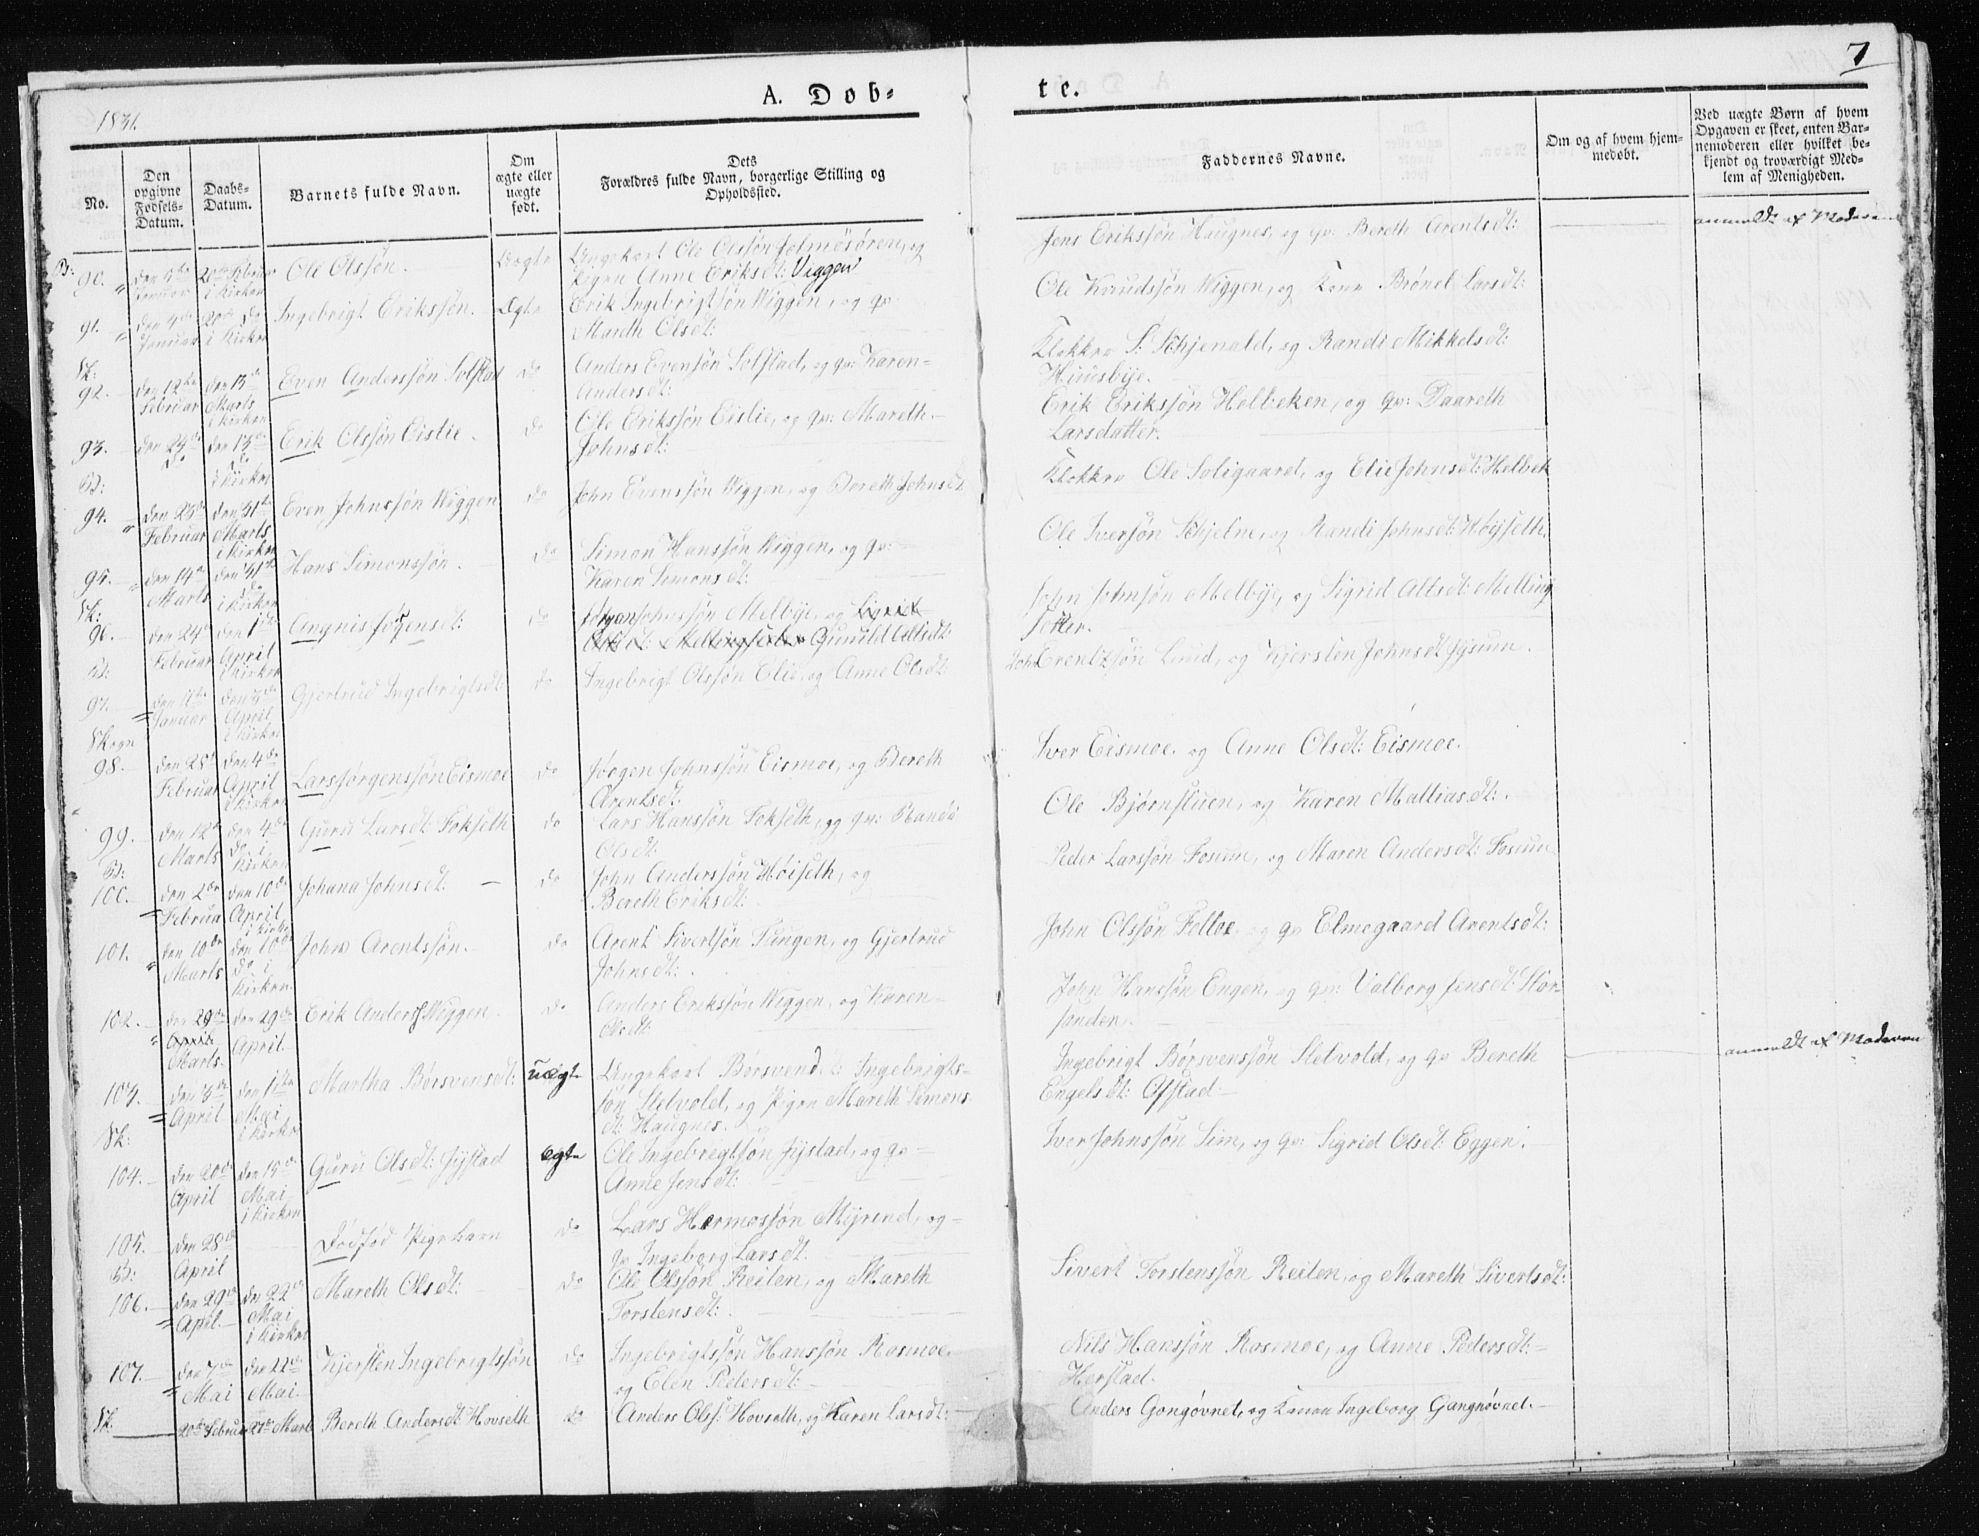 7
1831.
A. Dob-
te.
No.
Den opgivne Fødsels-Datum.
Daabs-Datum.
Barnets fulde Navn.
Om ægte eller uægte født.
Dets Forældres fulde Navn, borgerlige Stilling og Opholdssted.
Faddernes Navne.
Om og af hvem hjem-medøbt.
Ved uægte Børn af hvem Opgaven er skeet, enten Bar-nemoderen eller hvilket be-kjendt og troværdigt Med-lem af Menigheden.
B: 90. Januar i Kirken Ole Olssøn. Uægte Ungekarl Ole Olssøn og
Pigen Anne Eriksdt: Viggen
Jens Erikssøn Haugnes, og qv: Bereth Arentsdt: anmeldt af Moderen
91. Januar i Kirken Ingebrigt Erikssøn. Ægte Erik Ingebrigtsøn Wiggen, og qv:
Mareth Olsdt:
Ole Knudssøn Wiggen, og Kone Brønel Larsdt:
Sk: 92. den 12te Februar den 13de Marts i Kirken Even Anderssøn Solstad do Anders Evensøn Solstad, og qv: Karen
Andersdt:
Klokker S: Schjenald, og Randi Mikkelsdt:
Huusbye.
93. den 24de do den 13de do i Kirken Erik Olssøn Eislie. do Ole Erikssøn Eislie, og qv: Mareth
Johnsdt:
Erik Erikssøn Helbeken, og qv: Daareth
Larsdatter.
B: 94. Februar den 31te Marts i Kirken Even Johnssøn Wiggen do John Evenssøn Wiggen, og Bereth Johnsdt
Klokker Ole Soligaard, og Elie Johnsdt: Helbek
95. den 14de Marts den 31te do i Kirken Hans Simonssøn. do Simon Hanssøn Wiggen, og qv:
Karen Simonsdt:
Ole Iversøn Schjelne, og Randi Johnsdt: Høyseth.
Sk: 96. den 24de Februar den 1ste April i Kirken Angnis Jørgensdt: do Jørgen Johnssøn Melbye, og Sigrid
Gunild Altsdt:
John Johnsøn Melbye, og Sigrid Altsdt: Melling
sætter.
B: 97. Januar April i Kirken Gjertrud Ingebrigtsdt: do Ingebrigt Olssøn Elie, og Anne Olsdt:
John Erentzsøn Lund, og Kjersten Johnsdt
Skogn 98. den 25de Februar den 4de April i Kirken Lars Jørgenssøn Eismoe do Jørgen Johnssøn Eismoe, og Bereth
Arentsdt.
Iver Eismoe. og Anne Olsdt: Eismoe.
99. den 12te Marts den 4de do i Kirken Guru Larsdt: Fokseth do Lars Hanssøn Fokseth, og qv: Randi
Olsdt:
Ole Bjørnstuen, og Karen Mattiasdt:.
B: 100. den 2den Februar den 10de April i Kirken Johana Johnsdt: do John Anderssøn Høiseth, og
Bereth Eriksdt:
Peder Larssøn Fosum, og Maren Andersdt: Fosum
101. den 10de Marts den 10de do i Kirken John Arentssøn. do Arent Sivertsøn og Gjertrud
Johnsdt:
John Olssøn og qv Elmegaard Arentsdt:
102. den 29de April Marts den 29de April Erik Anders: Wiggen. do Anders Erikssøn Wiggen, og Karen
Olsdt:
John Hanssøn Engen, og qv: Valborg Jensdt: Stør-
sanden.
103. April den 1ste Mai i Kirken Martha Børsvensdt: uægt Ungekarl Børsvend Ingebrigts-
søn Sletvold, og Pigen Mareth Simons
dt: Haugnes.
Ingebrigt Børsvenssøn Sletvold, og qv Bereth
Engelsdt: Ofstad
anmeldt af Moderen
Sk: 104. den 20de April den 15de Mai i Kirken Guru Olsdt: Jystad ægte Ole Ingebrigtsøn Jystad, og qv
Anne Jensdt:
Iver Johnssøn Lim, og qv: Sigrid Olsdt: Eggen.
105. den 28de April Dødfød Pigebarn do Lars Hermossøn Myrend, og
qv Ingeborg Larsdt.
B: 106. den 29de April den 22de Mai i Kirken Mareth Olsdt: do Ole Olssøn Reiten, og Mareth
Torstensdt:.
Sivert Torstenssøn Reiten, og Mareth Sivertsdt:
107. den 7de Mai den 22de Mai Kjersten Ingebrigtssøn do Ingebrigtssøn Hanssøn Rosmoe
og Elen Pedersdt:
Nils Hanssøn Rosmoe, og Anne Pedersdt:
Herstad.
Sk. 20de Februar 27de Marts Bereth Andersdt: Hovseth do Anders Ols: Hovseth, og Karen Larsdt:
Anders Gongøvnet, og Konen Ingeborg Gangnøvnet.